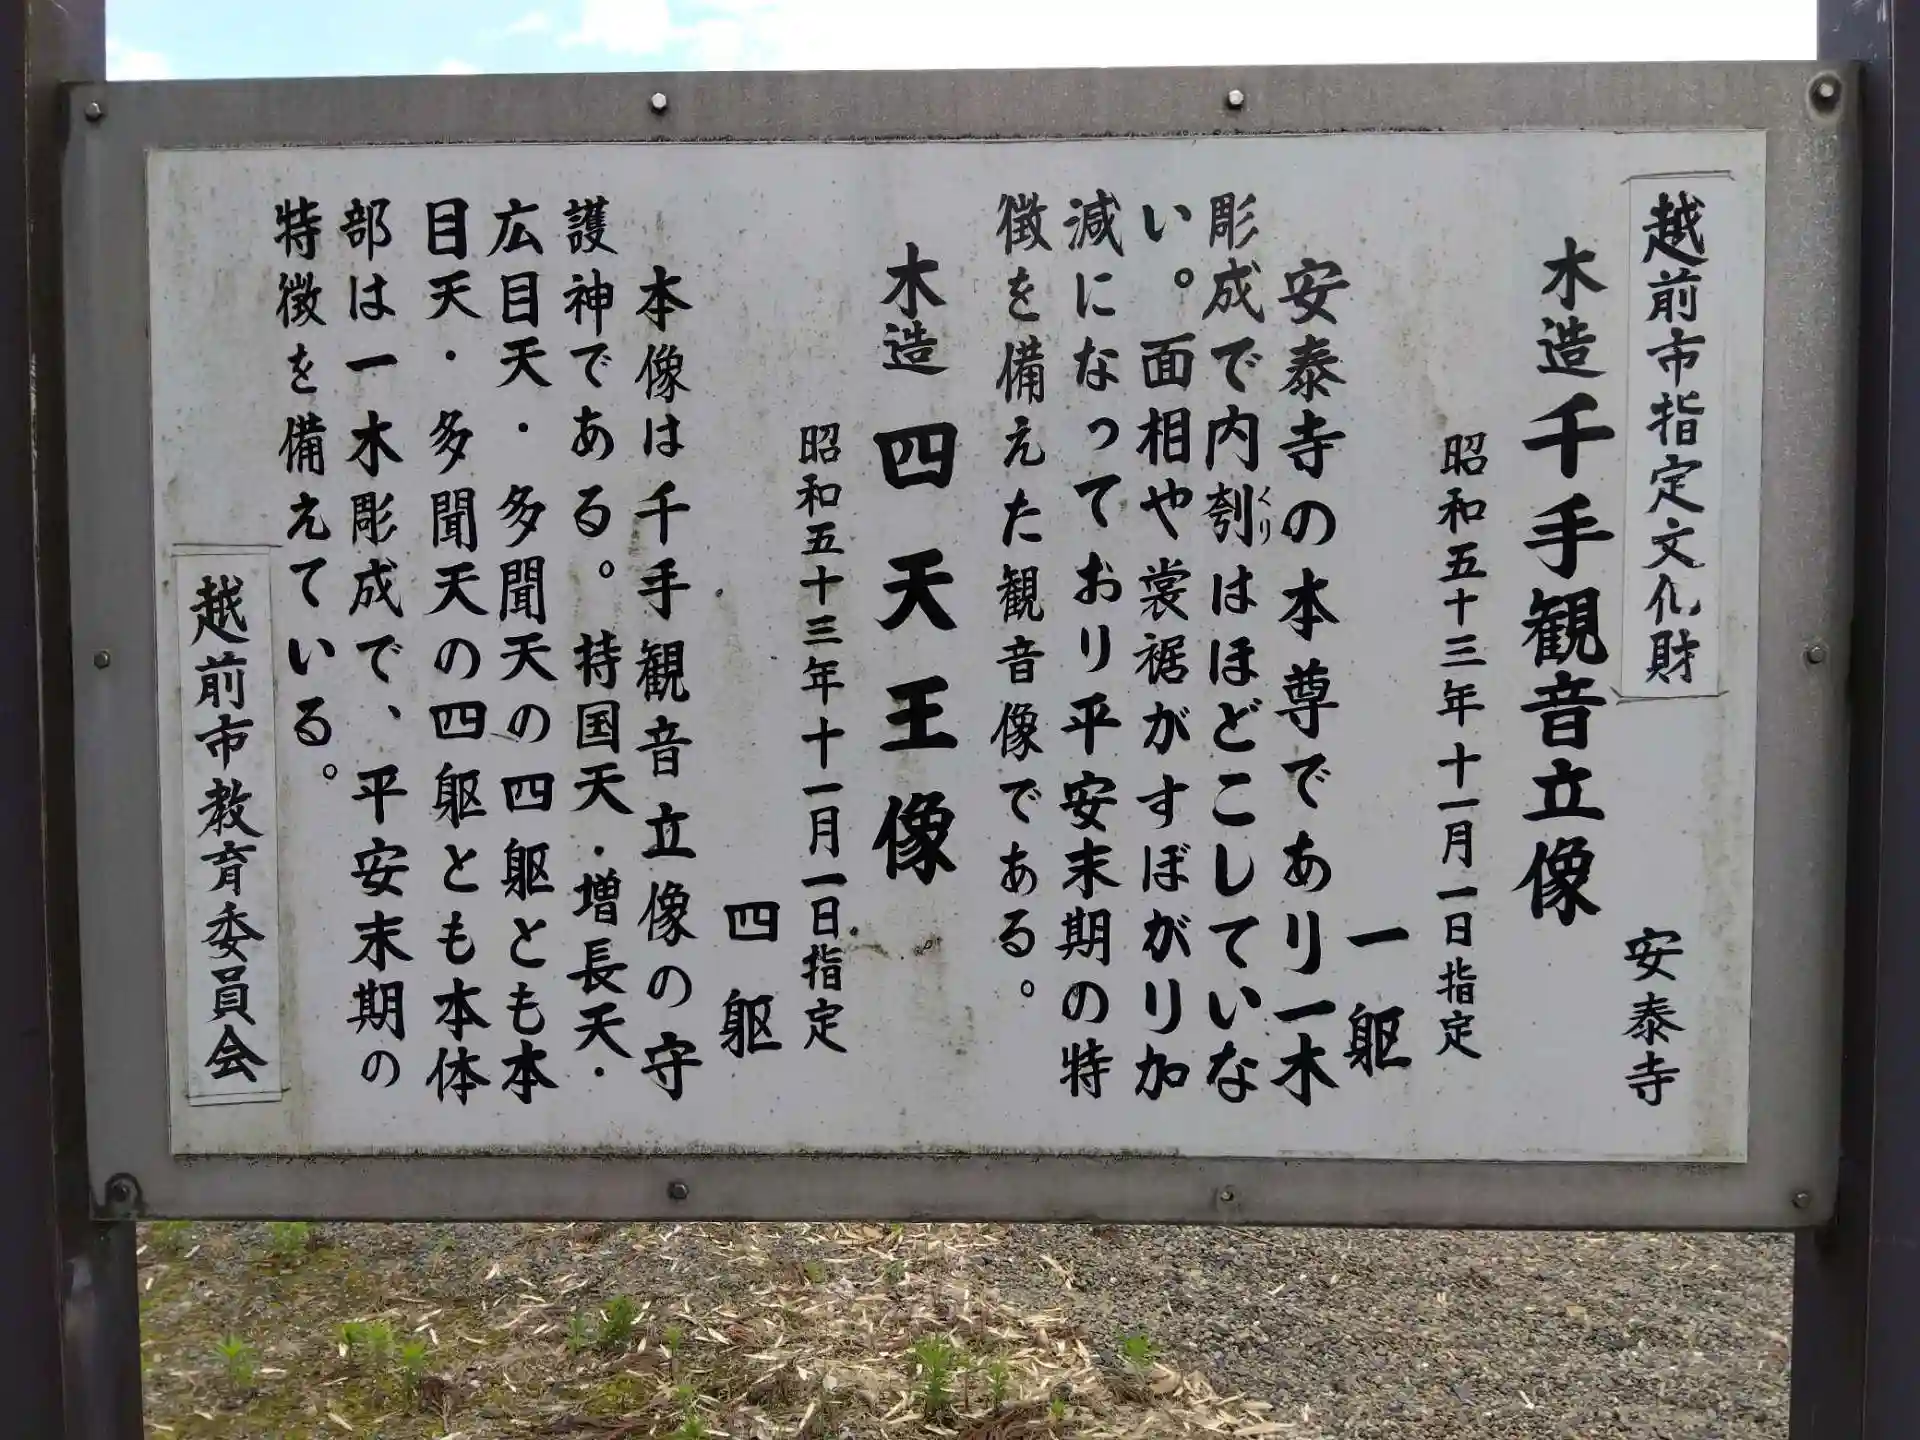 越前市指定文化財
安泰寺
木造千手観音立像
昭和五十三年十一月一日指定
一躯
安泰寺の本尊であり一木
彫成で内刳はほどこしていな
くり
い。面相や裳裾がすぼがり加
減になっており平安末期の特
徴を備えた観音像である。
木造四天王像
昭和五十三年十一月一日指定
四躯
本像は千手観音立像の守
護神である。持国天・増長天・
広目天・多聞天の四躯とも本
目天・多聞天の四躯とも本体
部は一木彫成で、平安末期の
特徴を備えている。
越前市教育委員会